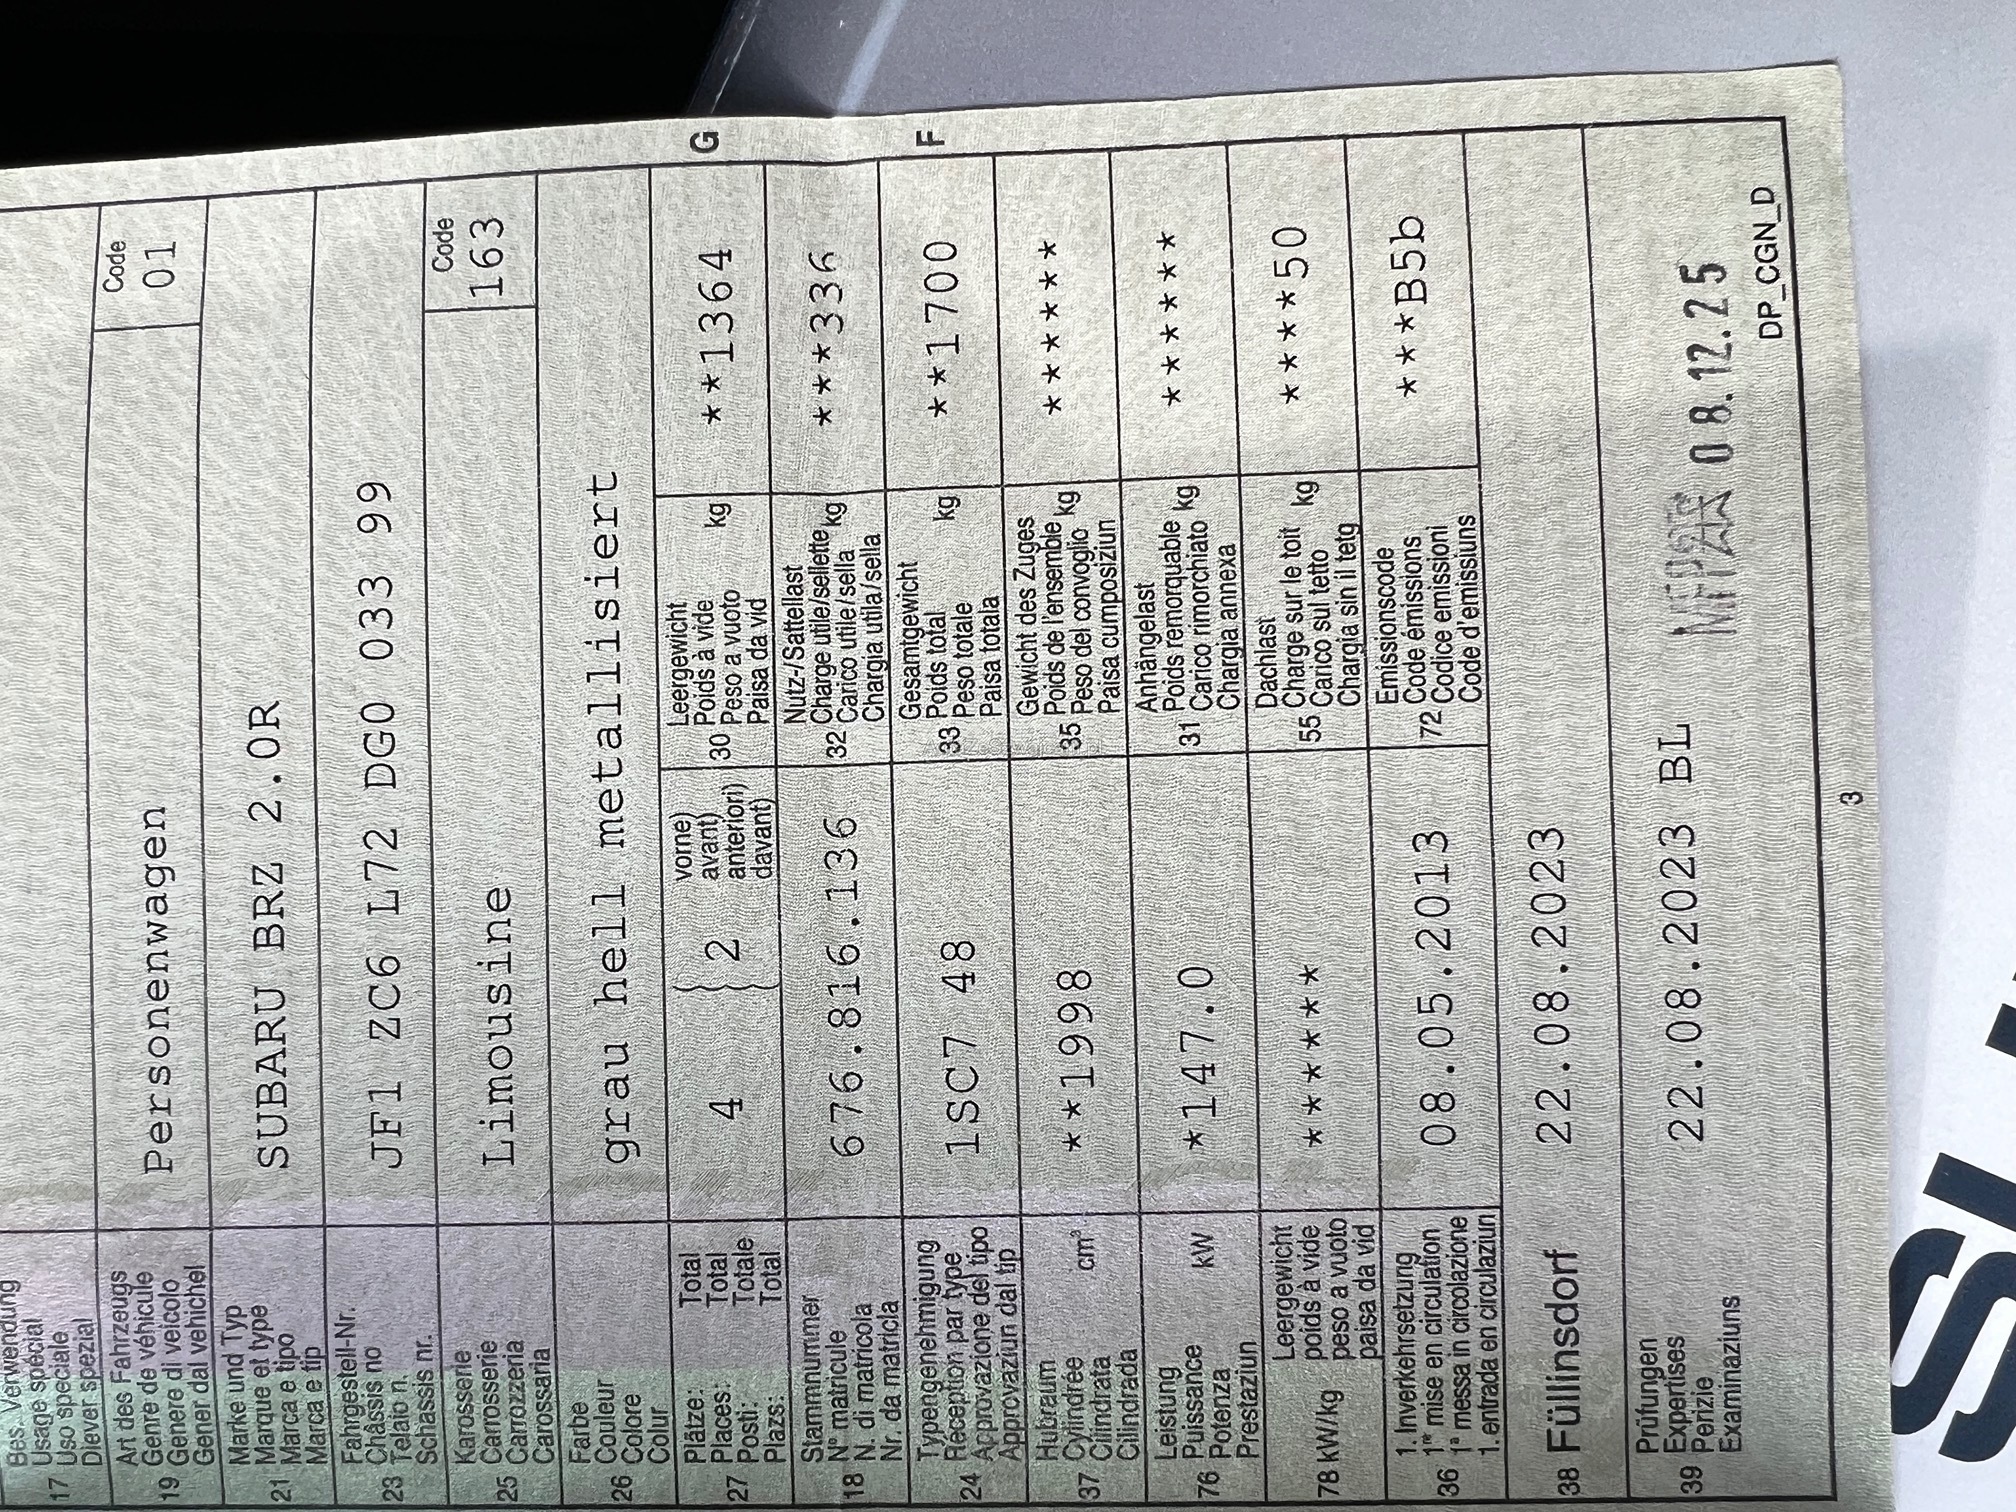 Bes. Verwendung
Usage spécial
17 Uso speciale
Diever spezial
Art des Fahrzeugs
19 Genre de véhicule
Genere di veicolo
Gener dal vehichel
Personenwagen
Code
01
Marke und Typ
21 Marque et type
Marca e tipo
Marca e tip
SUBARU BRZ 2.0R
Fahrgestell-Nr.
23 Châssis no
Telaio n.
Schassis nr.
JF1 ZC6 L72 DG0 033 99
Karosserie
25 Carrosserie
Carrozzeria
Carossaria
Limousine
Code
163
Farbe
26 Couleur
Colore
Colur
grau hell metallisiert
Plätze: Total
27 Places: Total
Posti: Totale
Plazs: Total
4
2
vorne)
avant)
anteriori)
davant)
Leergewicht
30 Poids à vide kg
Peso a vuoto
Paisa da vid
**1364
G
Stammnummer
18 N° matricule
N. di matricola
Nr. da matricla
676.816.136
Nutz-/Sattellast
32 Charge utile/sellette kg
Carico utile/sella
Chargia utila/sella
***336
Typengenehmigung
24 Réception par type
Approvazione del tipo
Approvaziun dal tip
1SC7 48
Gesamtgewicht
33 Poids total kg
Peso totale
Paisa totala
**1700
F
Hubraum
37 Cylindrée cm³
Cilindrata
Cilindrada
**1998
Gewicht des Zuges
35 Poids de l'ensemble kg
Peso del convoglio
Paisa cumposiziun
******
Leistung
76 Puissance kW
Potenza
Prestaziun
*147.0
Anhängelast
31 Poids remorquable kg
Carico rimorchiato
Chargia annexa
******
Leergewicht
78 kW/kg poids à vide
peso a vuoto
paisa da vid
******
Dachlast
55 Charge sur le toit kg
Carico sul tetto
Chargia sin il tetg
****50
1. Inverkehrsetzung
36 1re mise en circulation
1a messa in circolazione
1. entrada en circulaziun
08.05.2013
Emissionscode
72 Code émissions
Codice emissioni
Code d'emissiuns
***B5b
38 Füllinsdorf 22.08.2023
Prüfungen
39 Expertises
Penzie
Examinaziuns
22.08.2023 BL
08.12.25
DP_CGN_D
3